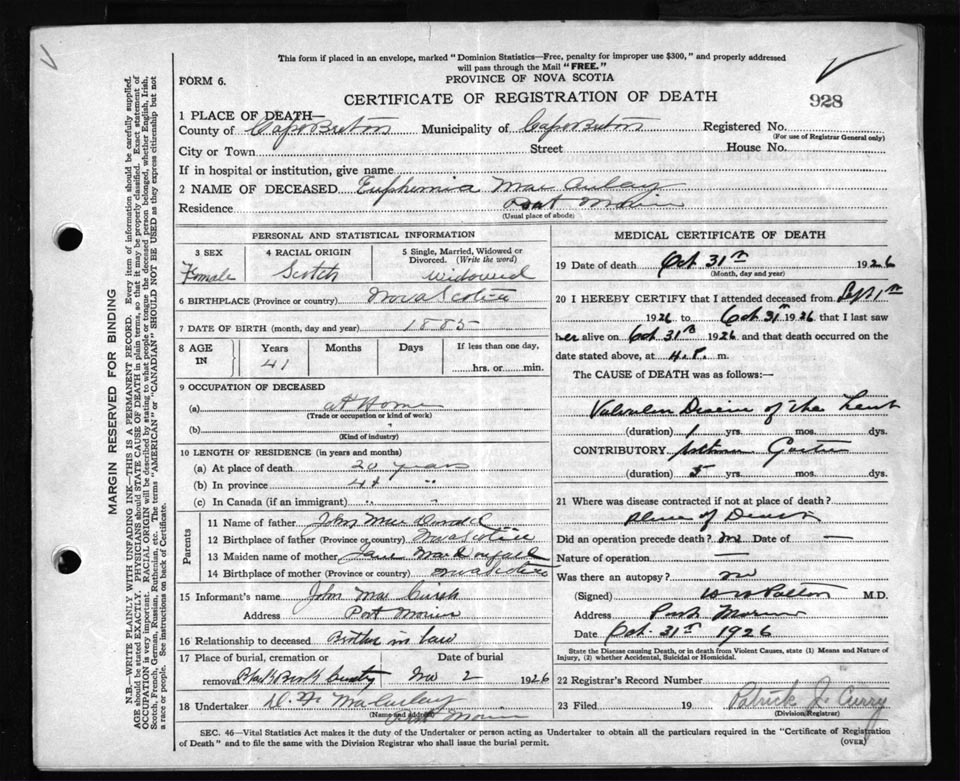 This form if placed in an envelope, marked "Dominion Statistics—Free, penalty for improper use $300," and properly addressed
will pass through the Mail "FREE."
FORM 6.
PROVINCE OF NOVA SCOTIA
CERTIFICATE OF REGISTRATION OF DEATH
928
1 PLACE OF DEATH—
County of Cape Breton Municipality of Cape Breton Registered No.
(For use of Registrar General only)
City or Town Street House No.
If in hospital or institution, give name
2 NAME OF DECEASED Euphemia Mac Aulay
Residence Port Morien
(Usual place of abode)
PERSONAL AND STATISTICAL INFORMATION
3 SEX 4 RACIAL ORIGIN 5 Single, Married, Widowed or Divorced. (Write the word)
Female Scotch Widowed
6 BIRTHPLACE (Province or country) Nova Scotia
7 DATE OF BIRTH (month, day and year) 1885
8 AGE IN Years Months Days If less than one day,
41 hrs. or min.
9 OCCUPATION OF DECEASED
(a) at Home
(Trade or occupation or kind of work)
(b)
(Kind of industry)
10 LENGTH OF RESIDENCE (in years and months)
(a) At place of death 20 years
(b) In province 41 "
(c) In Canada (if an immigrant) " "
Parents
11 Name of father John Mac Donald
12 Birthplace of father (Province or country) Nova Scotia
13 Maiden name of mother Jane MacDougall
14 Birthplace of mother (Province or country) Nova Scotia
15 Informant's name John Mac
Address Port Morien
16 Relationship to deceased Brother in law
17 Place of burial, cremation or Date of burial
removal Black Brook Nov 2 1926
18 Undertaker MacAulay
(Name and address) Port Morien
MEDICAL CERTIFICATE OF DEATH
19 Date of death Oct 31st 1926
(Month, day and year)
20 I HEREBY CERTIFY that I attended deceased from Sept 1st
1926 to Oct 31st 1926 that I last saw
her alive on Oct 31st 1926 and that death occurred on the
date stated above, at 4 P. m.
The CAUSE of DEATH was as follows:—
Valvular Disease of the heart
(duration) 1 yrs. mos. dys.
CONTRIBUTORY
(duration) 5 yrs. mos. dys.
21 Where was disease contracted if not at place of death?
place of Death
Did an operation precede death? no Date of —
Nature of operation —
Was there an autopsy? no
(Signed) Patton M.D.
Address Port Morien
Date Oct. 31st 1926
State the Disease causing Death, or in death from Violent Causes, state (1) Means and Nature of
Injury, (2) whether Accidental, Suicidal or Homicidal.
22 Registrar's Record Number
23 Filed 19 Patrick J. Curry
(Division Registrar)
SEC. 46—Vital Statistics Act makes it the duty of the Undertaker or person acting as Undertaker to obtain all the particulars required in the "Certificate of Registration
of Death" and to file the same with the Division Registrar who shall issue the burial permit.
(OVER)
MARGIN RESERVED FOR BINDING
N.B.—WRITE PLAINLY WITH UNFADING INK—THIS IS A PERMANENT RECORD. Every item of information should be carefully supplied.
AGE should be stated EXACTLY. PHYSICIANS should STATE CAUSE OF DEATH in plain terms, so that it may be properly classified. Exact statement of
OCCUPATION is very important. RACIAL ORIGIN will be described by stating to what people or tongue the deceased person belonged, whether English, Irish,
Scotch, French, German, Russian, Ruthenian, etc. The terms "AMERICAN" or "CANADIAN" SHOULD NOT BE USED as they express citizenship but not
a race or people. See instructions on back of Certificate.